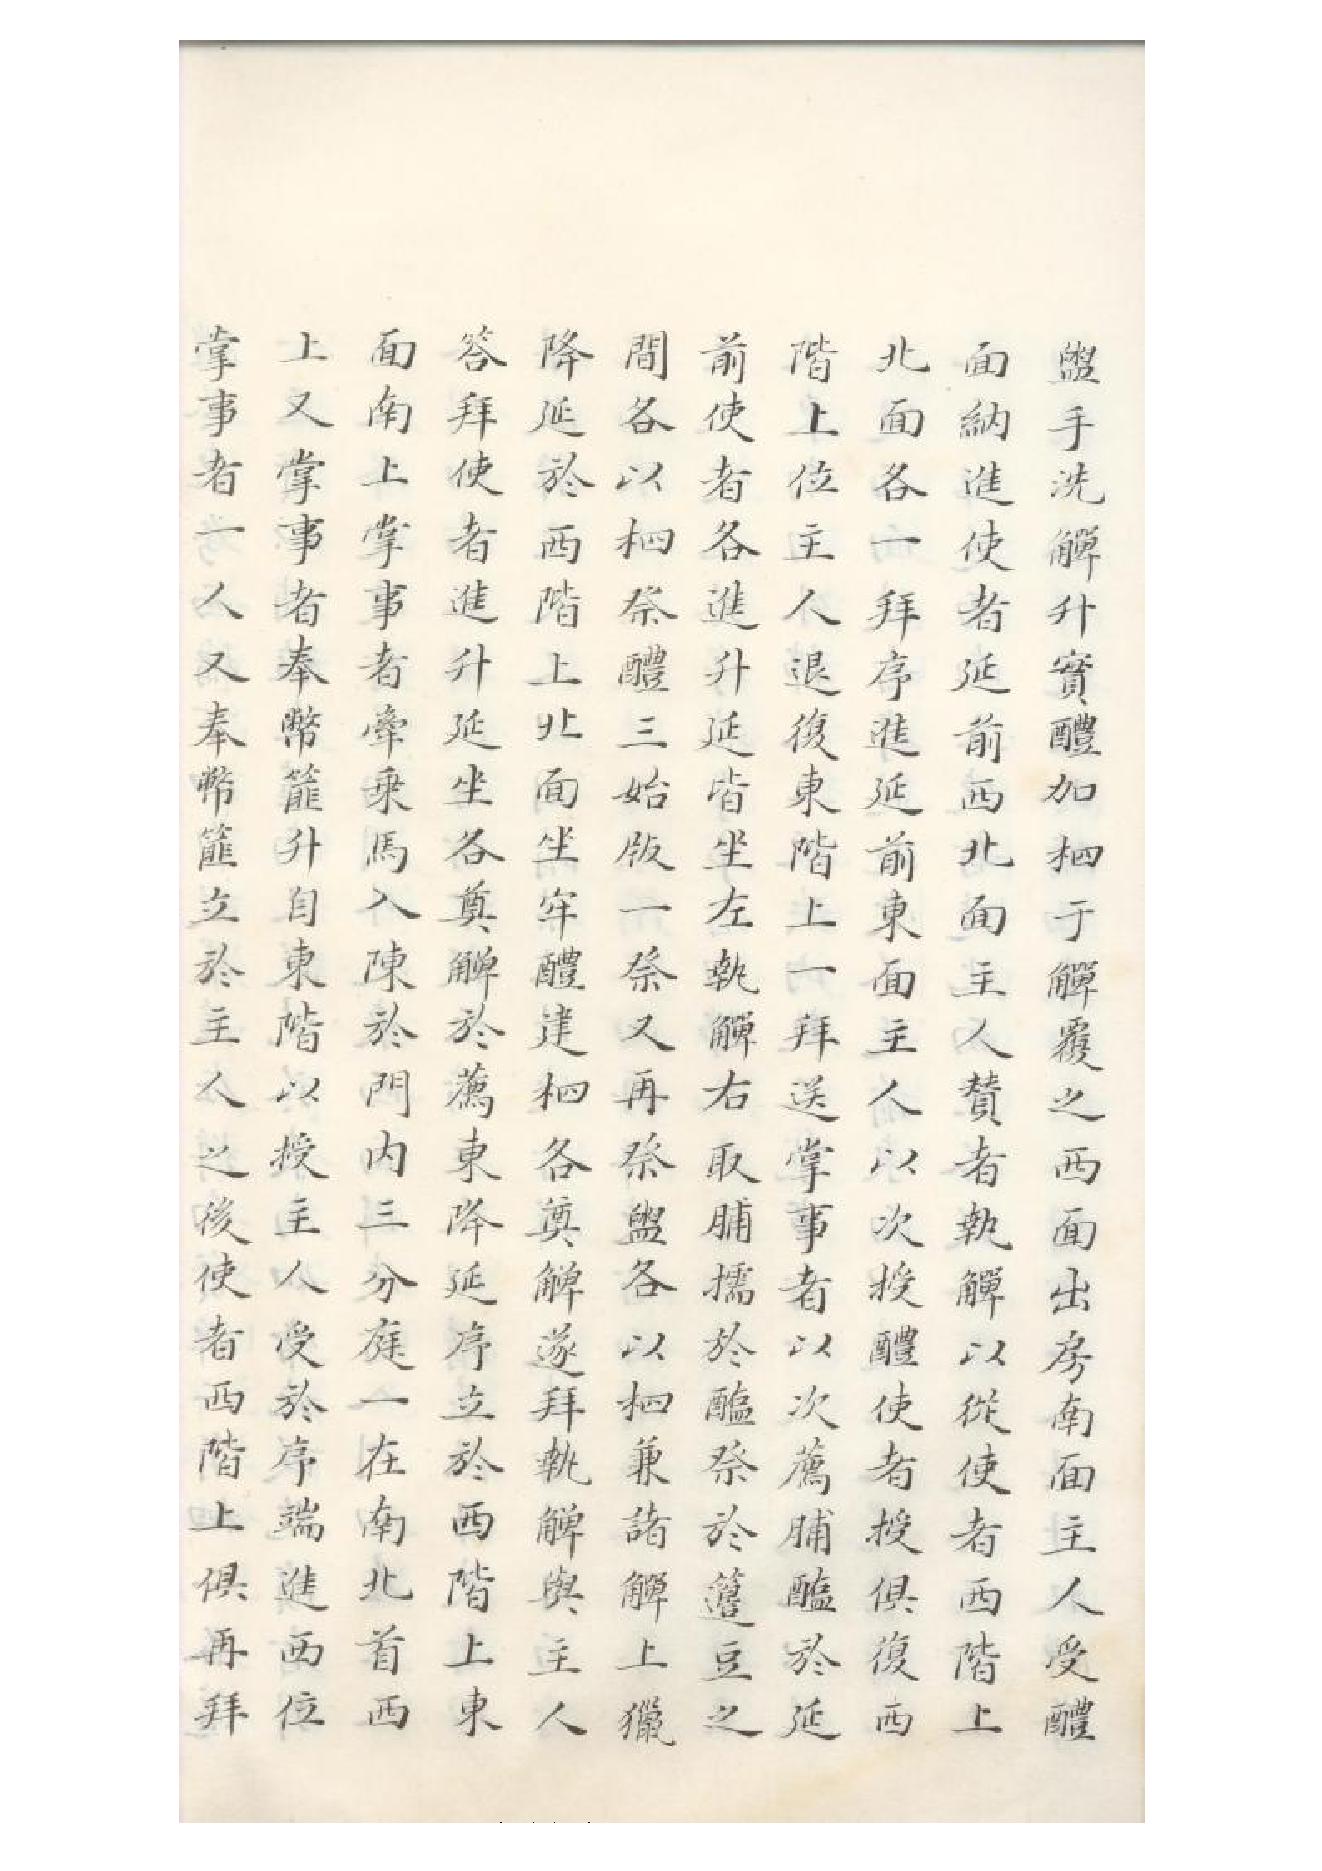 盥手洗觶升實醴加柶于觶覆之西面出房南面主人受醴
面納進使者延前西北面主人賛者執觶以從使者西階上
北面各一拜序進延前東面主人以次授醴使者授俱復西
階上位主人退復東階上一拜送掌事者以次薦脯醢於延
前使者各進升延皆坐左執觶右取脯擩於醢祭於籩豆之
間各以柶祭醴三始扱一祭又再祭盥各以柶兼諸觶上獵
降延於西階上北面坐啐醴建柶各奠觶遂拜執觶興主人
答拜使者進升延坐各奠觶於薦東降延序立於西階上東
面南上掌事者牽乗馬入陳於門内三分庭一在南北首西
上又掌事者奉幣篚升自東階以授主人受於序端進西位
掌事者一人又奉幣篚立於主人之後使者西階上俱再拜